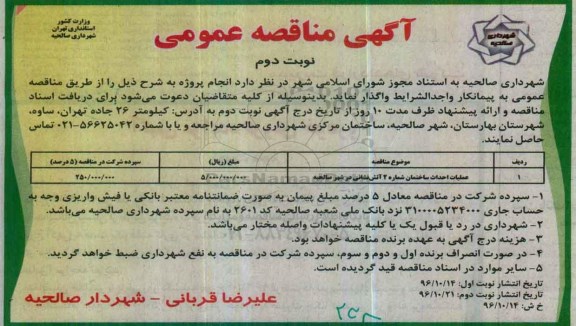 وزارت کشور
استانداری تهران
شهرداری صالحیه
آگهی مناقصه عمومی
شهرداری
صالحیه
نوبت دوم
شهرداری صالحیه به استناد مجوز شورای اسلامی شهر در نظر دارد انجام پروژه به شرح ذیل را از طریق مناقصه
عمومی به پیمانکار واجدالشرایط واگذار نماید. بدینوسیله از کلیه متقاضیان دعوت می‌شود برای دریافت اسناد
مناقصه و ارائه پیشنهاد ظرف مدت ۱۰ روز از تاریخ درج آگهی نوبت دوم به آدرس: کیلومتر ۲۶ جاده تهران، ساوه،
شهرستان بهارستان، شهر صالحیه، ساختمان مرکزی شهرداری صالحیه مراجعه و یا با شماره ۵۶۶۲۵۰۴۲-۰۲۱ تماس
حاصل نمایند.
ردیف موضوع مناقصه مبلغ (ریال) سپرده شرکت در مناقصه (۵ درصد)
۱ عملیات احداث ساختمان شماره ۲ آتش‌نشانی در شهر صالحیه ۵/۰۰۰/۰۰۰/۰۰۰ ۲۵۰/۰۰۰/۰۰۰
۱- سپرده شرکت در مناقصه معادل ۵ درصد مبلغ پیمان به صورت ضمانتنامه معتبر بانکی یا فیش واریزی وجه به
حساب جاری ۳۱۰۰۰۰۵۲۳۴۰۰۰ نزد بانک ملی شعبه صالحیه کد ۲۶۰۱ به نام سپرده شهرداری صالحیه می‌باشد.
۲- شهرداری در رد یا قبول یک یا کلیه پیشنهادات واصله مختار می‌باشد.
۳- هزینه درج آگهی به عهده برنده مناقصه خواهد بود.
۴- در صورت انصراف برنده اول و دوم و سوم، سپرده شرکت در مناقصه به نفع شهرداری ضبط خواهد گردید.
۵- سایر موارد در اسناد مناقصه قید گردیده است.
تاریخ انتشار نوبت اول: ۹۶/۱۰/۱۴
تاریخ انتشار نوبت دوم: ۹۶/۱۰/۲۱
خ ش: ۹۶/۱۰/۱۴
علیرضا قربانی - شهردار صالحیه